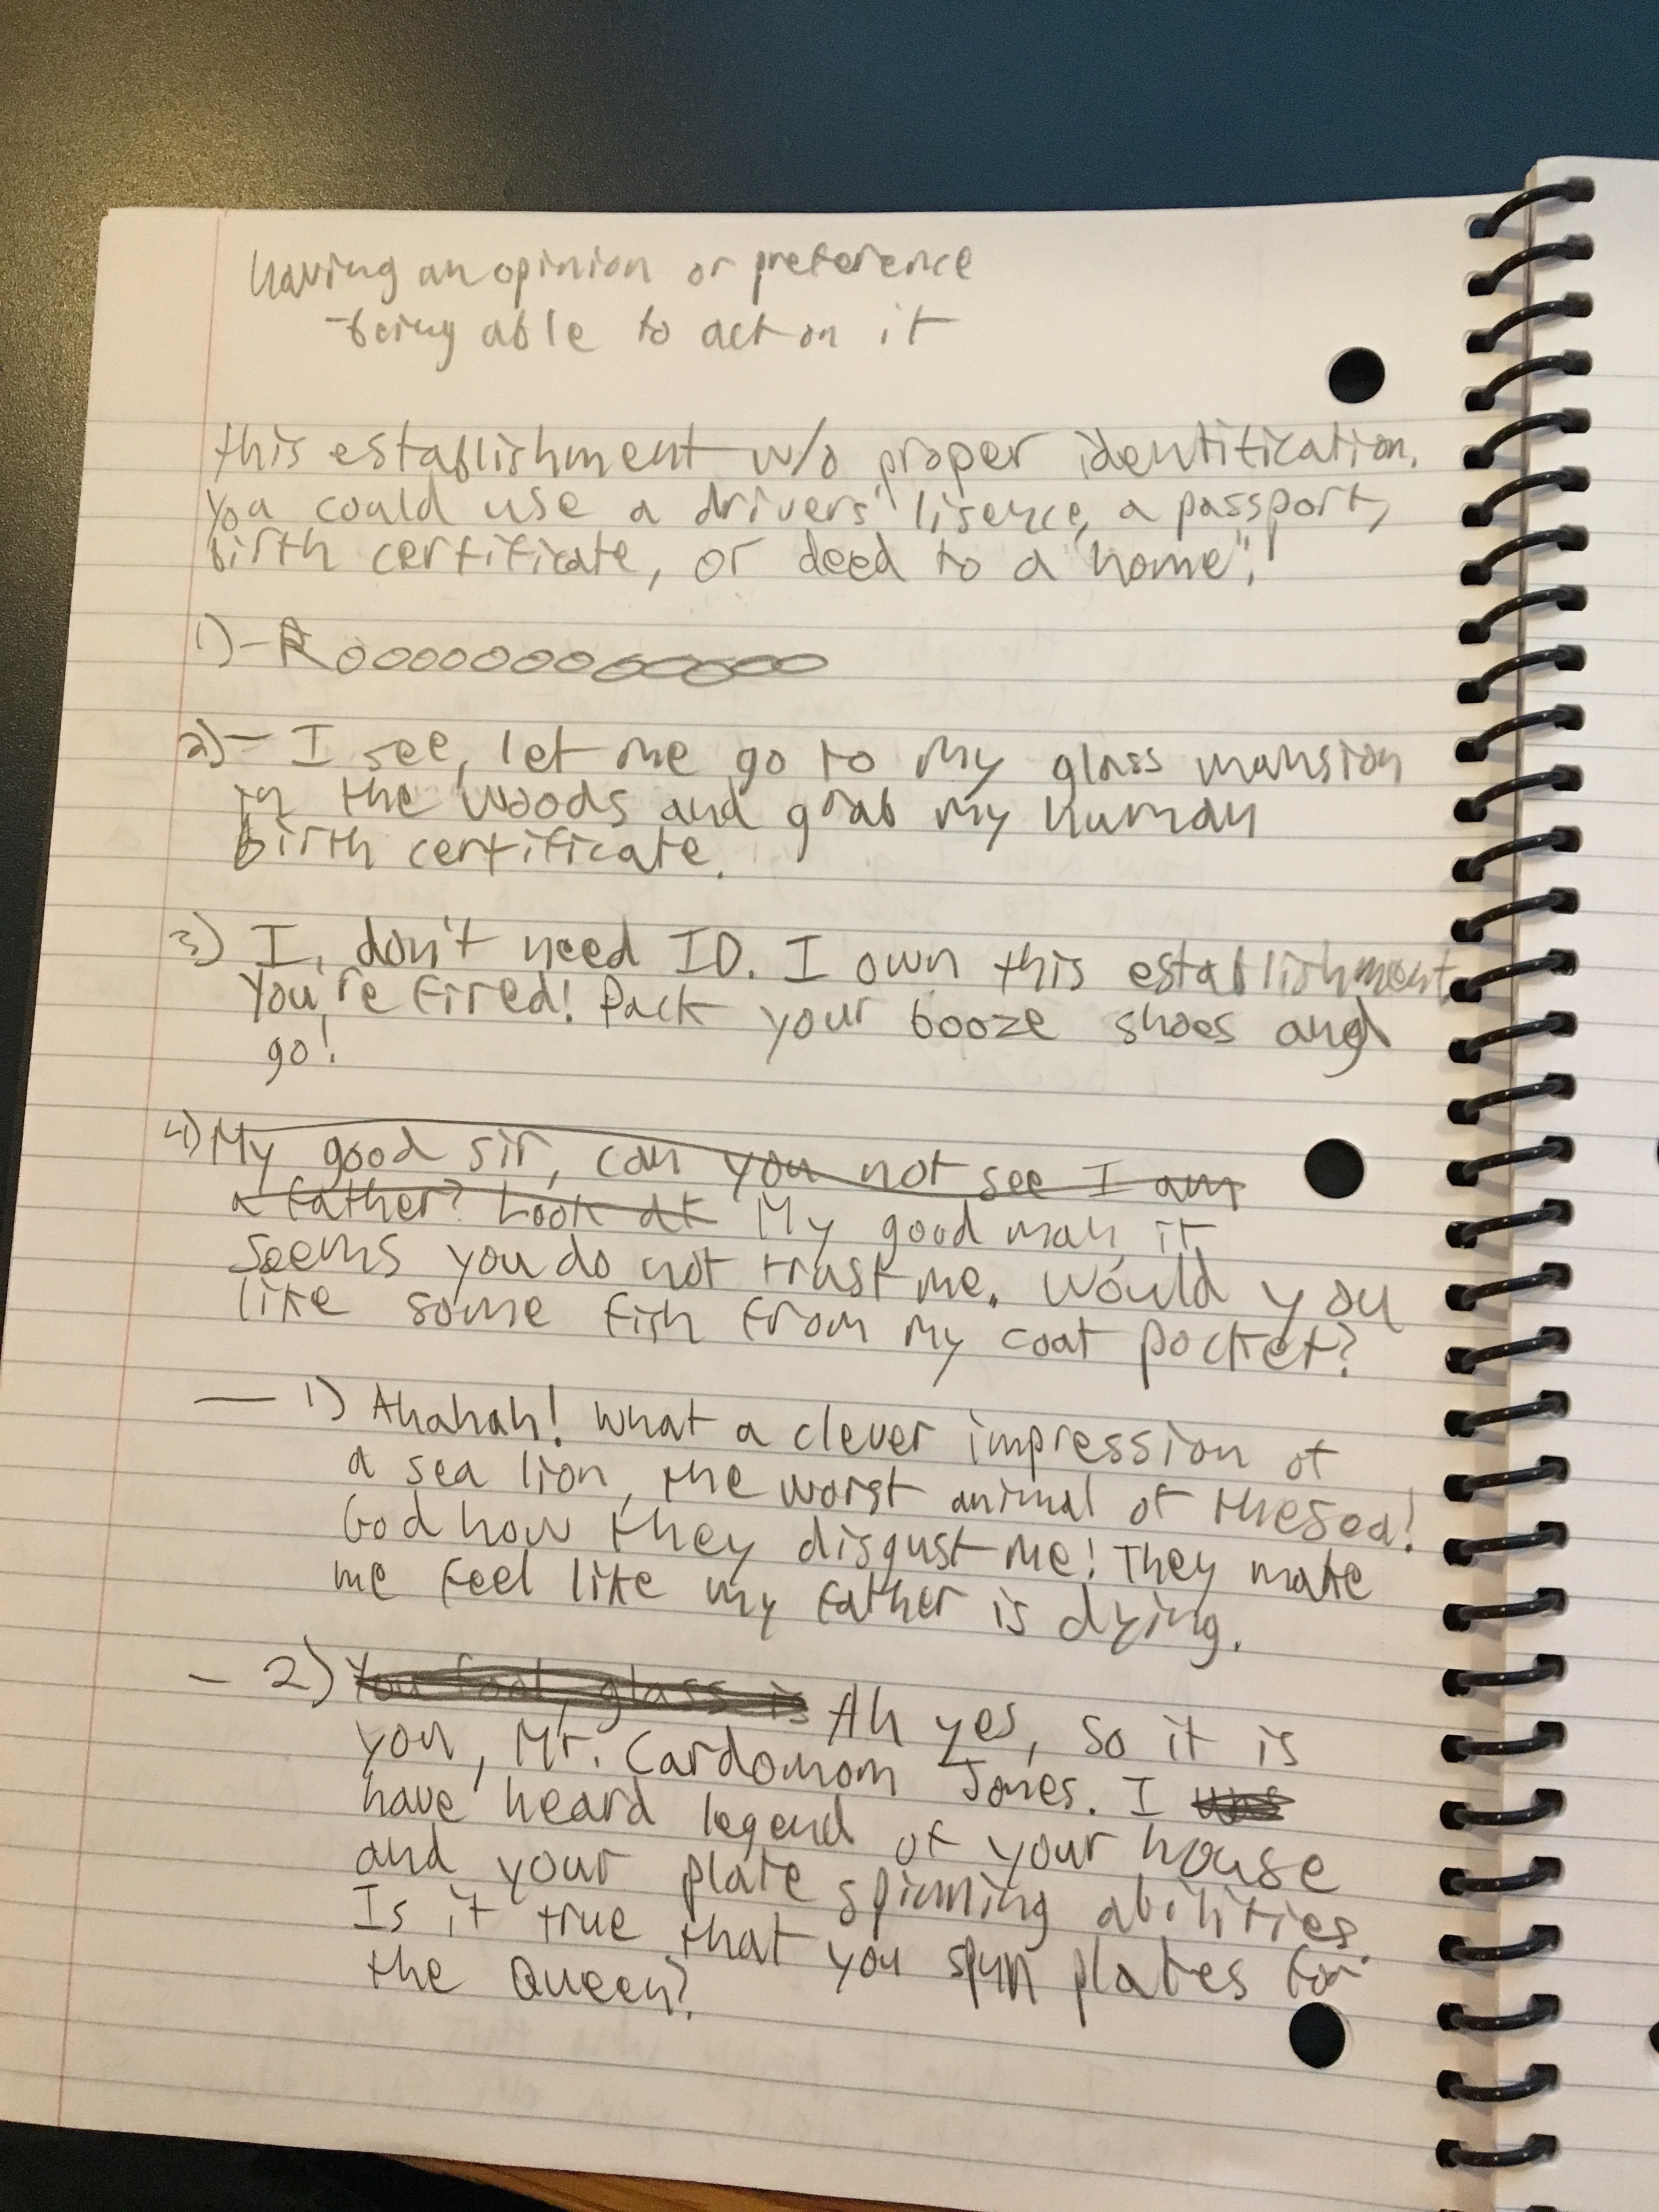 having an opinion or preference
-being able to act on it
this establishment w/o proper identification.
You could use a drivers' lisence, a passport,
birth certificate, or deed to a "home".'
1) - Roooooooooooooo
2) - I see, let me go to my glass mansion
in the woods and grab my human
birth certificate.
3) I, don't need ID. I own this establishment.
You're fired! Pack your booze shoes and
go!
4) My good sir, can you not see I am
a father? Look at My good man, it
seems you do not trust me. Would you
like some fish from my coat pocket?
— 1) Ahahah! What a clever impression of
a sea lion, the worst animal of the sea!
God how they disgust me! They make
me feel like my father is dying.
- 2) You fool, glass is Ah yes, so it is
you, Mr. Cardomom Jones. I was
have heard legend of your house
and your plate spinning abilities.
Is it true that you spun plates for
the Queen?